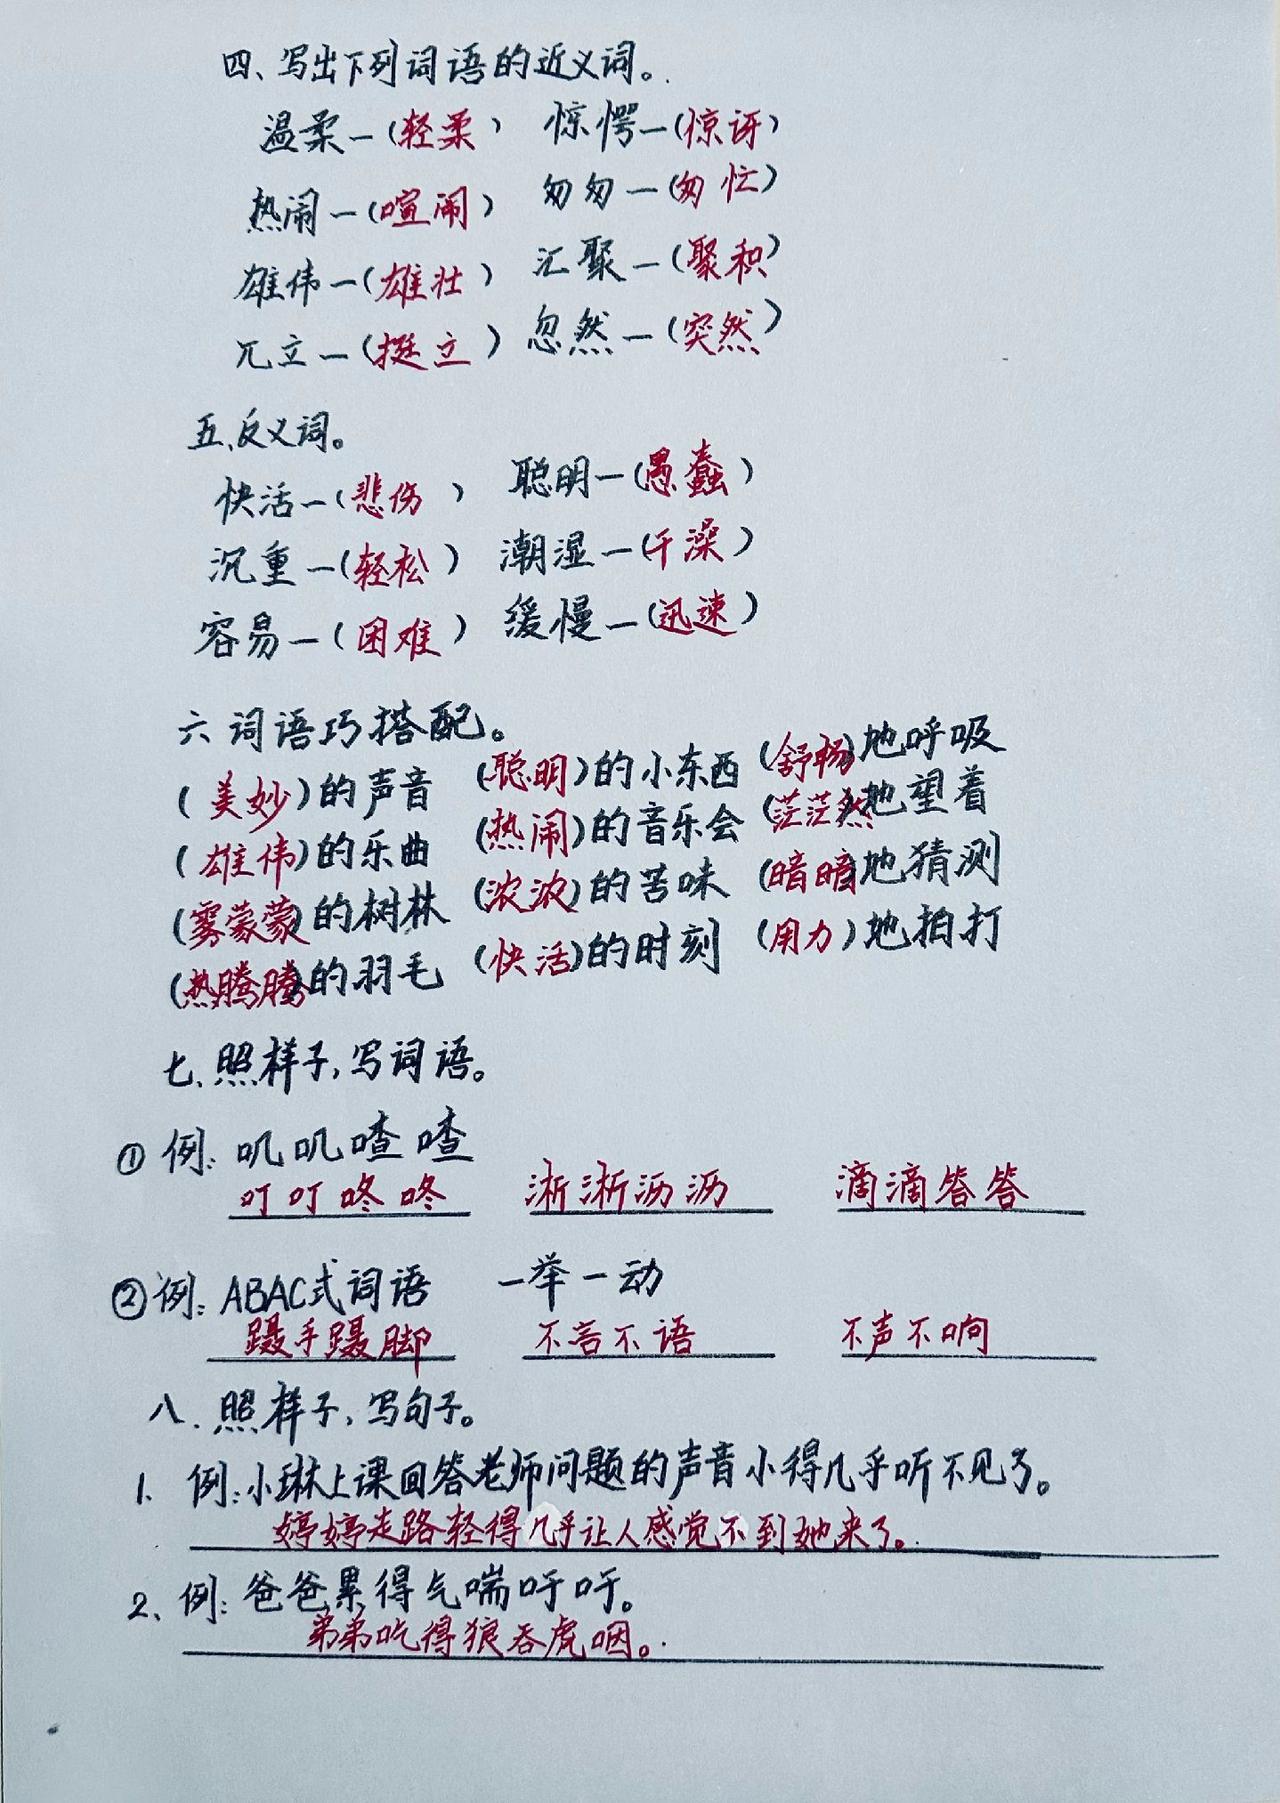 四、写出下列词语的近义词。
温柔—(轻柔) 惊愕—(惊讶)
热闹—(喧闹) 匆匆—(匆忙)
雄伟—(雄壮) 汇聚—(聚积)
兀立—(挺立) 忽然—(突然)
五、反义词。
快活—(悲伤) 聪明—(愚蠢)
沉重—(轻松) 潮湿—(干澡)
容易—(困难) 缓慢—(迅速)
六 词语巧搭配。
(美妙)的声音 (聪明)的小东西 (舒畅)地呼吸
(雄伟)的乐曲 (热闹)的音乐会 (茫茫然)地望着
(雾蒙蒙)的树林 (浓浓)的苦味 (暗暗)地猜测
(热腾腾)的羽毛 (快活)的时刻 (用力)地拍打
七、照样子,写词语。
① 例: 叽叽喳喳
叮叮咚咚 淅淅沥沥 滴滴答答
② 例: ABAC式词语 一举一动
蹑手蹑脚 不言不语 不声不响
八、照样子,写句子。
1、例:小琳上课回答老师问题的声音小得几乎听不见了。
婷婷走路轻得几乎让人感觉不到她来了。
2、例:爸爸累得气喘吁吁。
弟弟吃得狼吞虎咽。